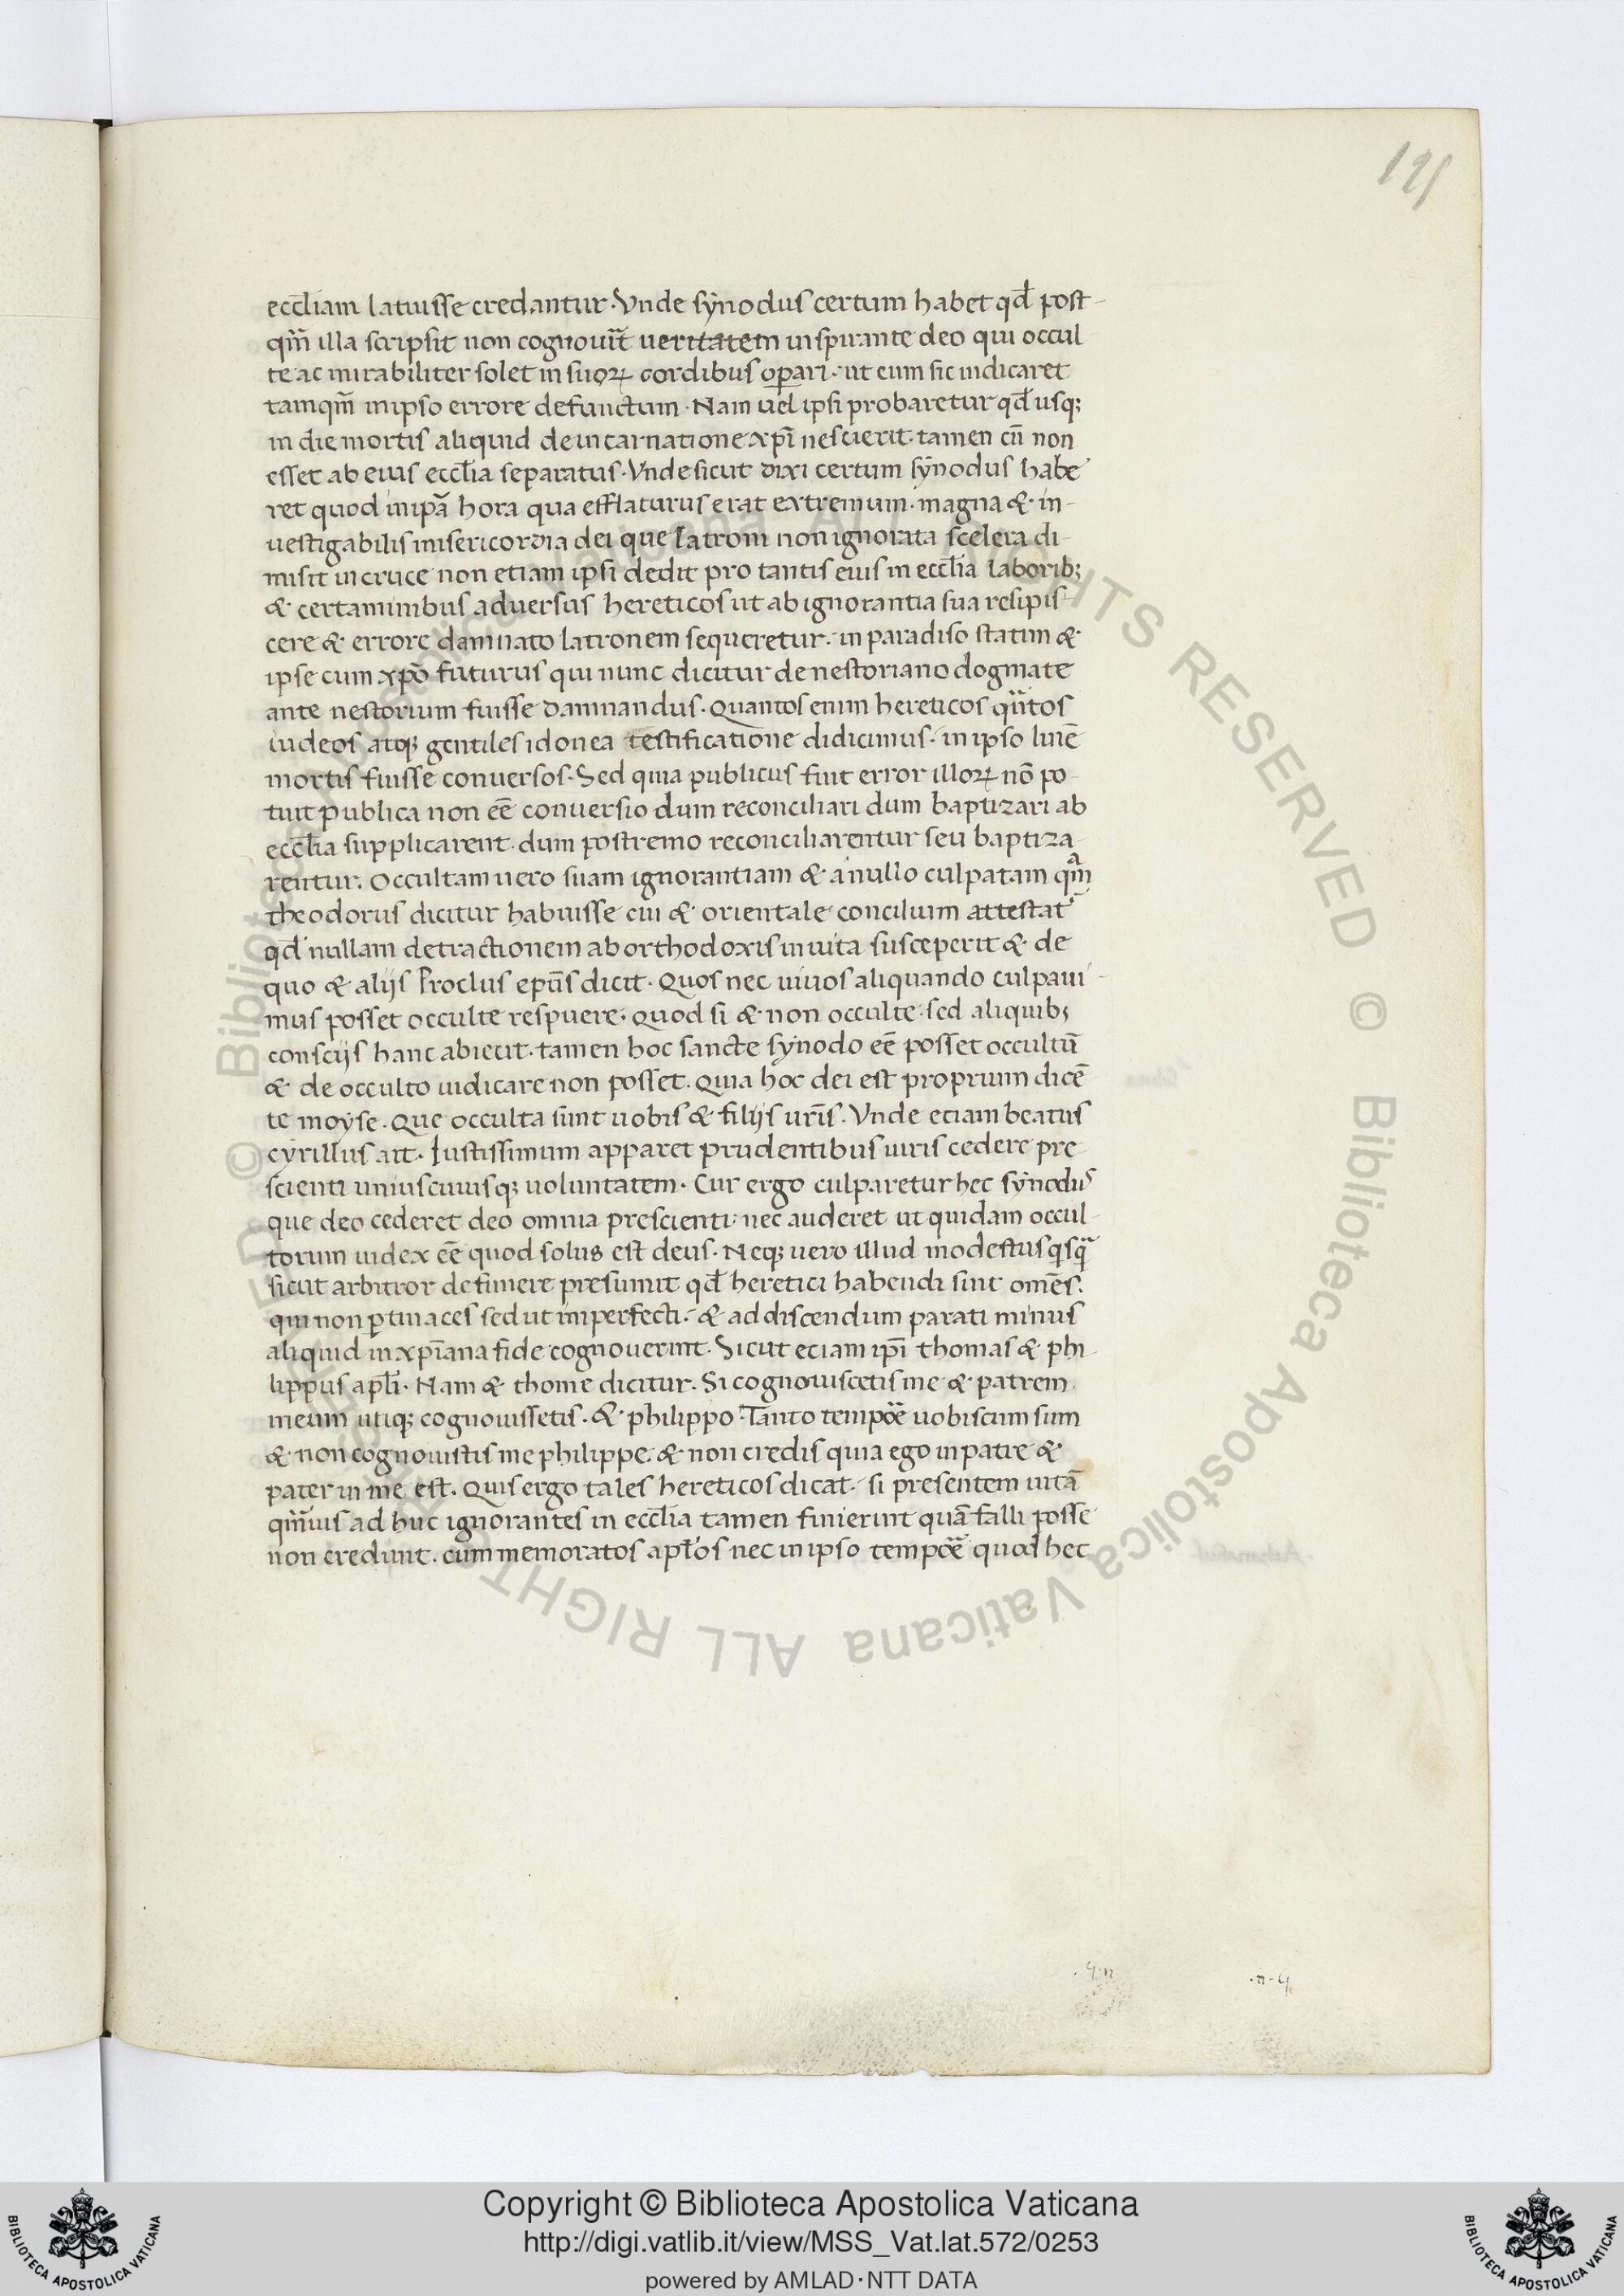 125
eccl̄iam latuisse credantur. Vnde sẏnodus certum habet qd̄ post-
qm̄ illa scripsit non cognouit̄ ueritatem inspirante deo qui occul
te ac mirabiliter solet in suoꝝ cordibus oꝑari. ut eum sic iudicaret
tamqm̄ in ipso errore defunctum. Nam uel ipsi probaretur qd̄ usqꝫ
in die mortis aliquid de incarnatione xp̄i nescierit. tamen cū non
esset ab eius eccl̄ia separatus. Vnde sicut dixi certum sẏnodus habe
ret quod in ip̄a hora qua efflaturus erat extremum. magna & in-
uestigabilis misericordia dei que latroni non ignorata scelera di-
misit in cruce non etiam ipsi dedit pro tantis eius in eccl̄ia laboribꝫ
& certaminibus aduersus hereticos ut ab ignorantia sua resipis-
cere & errore damnato latronem sequeretur. in paradiso statim &
ipse cum xp̄o futurus qui nunc dicitur de nestoriano dogmate
ante nestorium fuisse damnandus. Quantos enim hereticos qᷓtos
iudeos atqꝫ gentiles idonea testificatione didicimus. in ipso limē
mortis fuisse conuersos. Sed quia publicus fuit error illoꝝ nō po-
tuit publica non eē conuersio dum reconciliari dum baptizari ab
eccl̄ia supplicarent. dum postremo reconciliarentur seu baptiza-
rentur. Occultam uero suam ignorantiam & a nullo culpatam qᷓm
theodorus dicitur habuisse cui & orientale concilium attestat᷑
qd̄ nullam detractionem ab orthodoxis in uita susceperit & de
quo & alijs Proclus ep̄us dicit. Quos nec uiuos aliquando culpaui-
mus posset occulte respuere. Quod si & non occulte sed aliquibꝫ
conscijs hanc abiecit. tamen hoc sancte sẏnodo eē posset occultū
& de occulto iudicare non posset. Quia hoc dei est proprium dicē
te moẏse. Que occulta sunt uobis & filijs ur̄is. Vnde etiam beatus
cyrillus ait. Iustissimum apparet prudentibus uiris cedere pre
scienti uniuscuiusqꝫ uoluntatem. Cur ergo culparetur hec sẏnodus
que deo cederet deo omnia prescienti. nec auderet ut quidam occul-
torum iudex eē quod solus est deus. Neqꝫ uero illud modestus qsqᷓ
sicut arbitror definiere presumit qd̄ heretici habendi sint om̄es.
qui non ꝑtinaces sed ut imperfecti. & ad discendum parati minus
aliquid in xp̄iana fide cognouerint. Sicut etiam ip̄i thomas & phi-
lippus apl̄i. Nam & thome dicitur. Si cognouiscetis me & patrem
meum utiqꝫ cognouissetis. & philippo. Tanto tempoꝝē uobiscum sum
& non cognouistis me philippe. & non credis quia ego in patre &
pater in me est. Quis ergo tales hereticos dicat. si presentem uitā
qm̄uis ad huc ignorantes in eccl̄ia tamen finierint quā falli posse
non credunt. cum memoratos apl̄os nec in ipso tempoꝝē quod hec
Copyright © Biblioteca Apostolica Vaticana
http://digi.vatlib.it/view/MSS_Vat.lat.572/0253
powered by AMLAD·NTT DATA